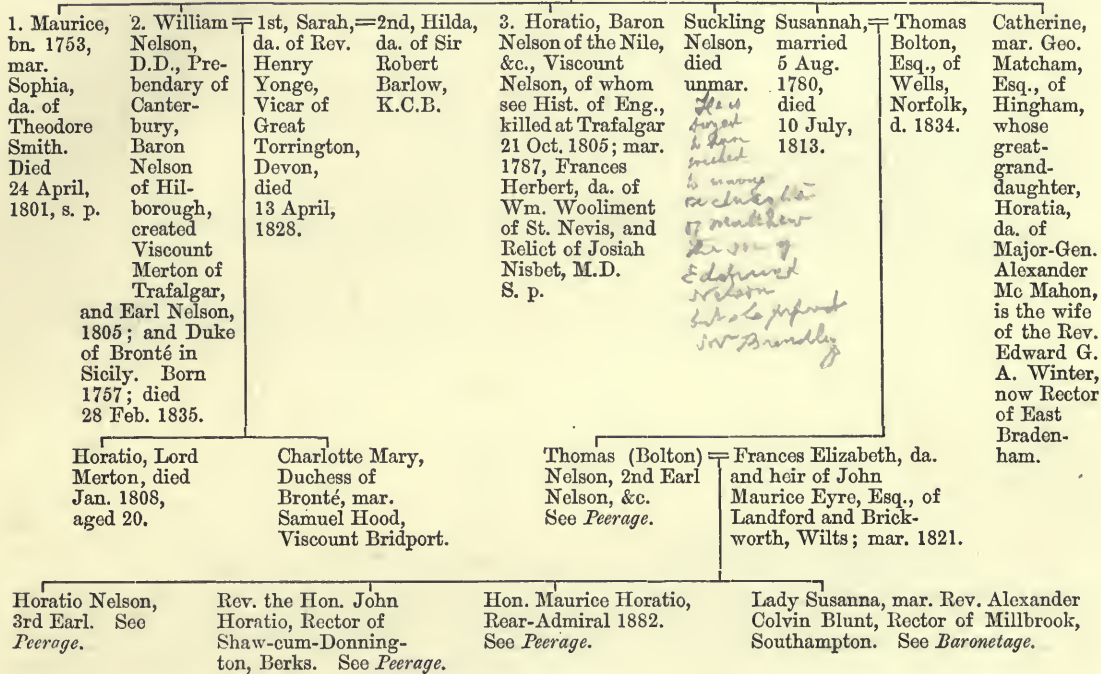 1. Maurice,
bn. 1753,
mar.
Sophia,
da. of
Theodore
Smith.
Died
24 April,
1801, s. p.
2. William
Nelson,
D.D., Pre-
bendary of
Canter-
bury,
Baron
Nelson
of Hil-
borough,
created
Viscount
Merton of
Trafalgar,
and Earl Nelson,
1805; and Duke
of Bronté in
Sicily. Born
1757; died
28 Feb. 1835.
1st, Sarah,
da. of Rev.
Henry
Yonge,
Vicar of
Great
Torrington,
Devon,
died
13 April,
1828.
2nd, Hilda,
da. of Sir
Robert
Barlow,
K.C.B.
3. Horatio, Baron
Nelson of the Nile,
&c., Viscount
Nelson, of whom
see Hist. of Eng.,
killed at Trafalgar
21 Oct. 1805; mar.
1787, Frances
Herbert, da. of
Wm. Wooliment
of St. Nevis, and
Relict of Josiah
Nisbet, M.D.
S. p.
Suckling
Nelson,
died
unmar.
He is
to have
wished
to marry
of Matthew
the son of
Edward
Nelson
but she
Mr
Susannah,
married
5 Aug.
1780,
died
10 July,
1813.
Thomas
Bolton,
Esq., of
Wells,
Norfolk,
d. 1834.
Catherine,
mar. Geo.
Matcham,
Esq., of
Hingham,
whose
great-
grand-
daughter,
Horatia,
da. of
Major-Gen.
Alexander
Mc Mahon,
is the wife
of the Rev.
Edward G.
A. Winter,
now Rector
of East
Braden-
ham.
Horatio, Lord
Merton, died
Jan. 1808,
aged 20.
Charlotte Mary,
Duchess of
Bronté, mar.
Samuel Hood,
Viscount Bridport.
Thomas (Bolton)
Nelson, 2nd Earl
Nelson, &c.
See Peerage.
Frances Elizabeth, da.
and heir of John
Maurice Eyre, Esq., of
Landford and Brick-
worth, Wilts; mar. 1821.
Horatio Nelson,
3rd Earl. See
Peerage.
Rev. the Hon. John
Horatio, Rector of
Shaw-cum-Donning-
ton, Berks. See Peerage.
Hon. Maurice Horatio,
Rear-Admiral 1882.
See Peerage.
Lady Susanna, mar. Rev. Alexander
Colvin Blunt, Rector of Millbrook,
Southampton. See Baronetage.